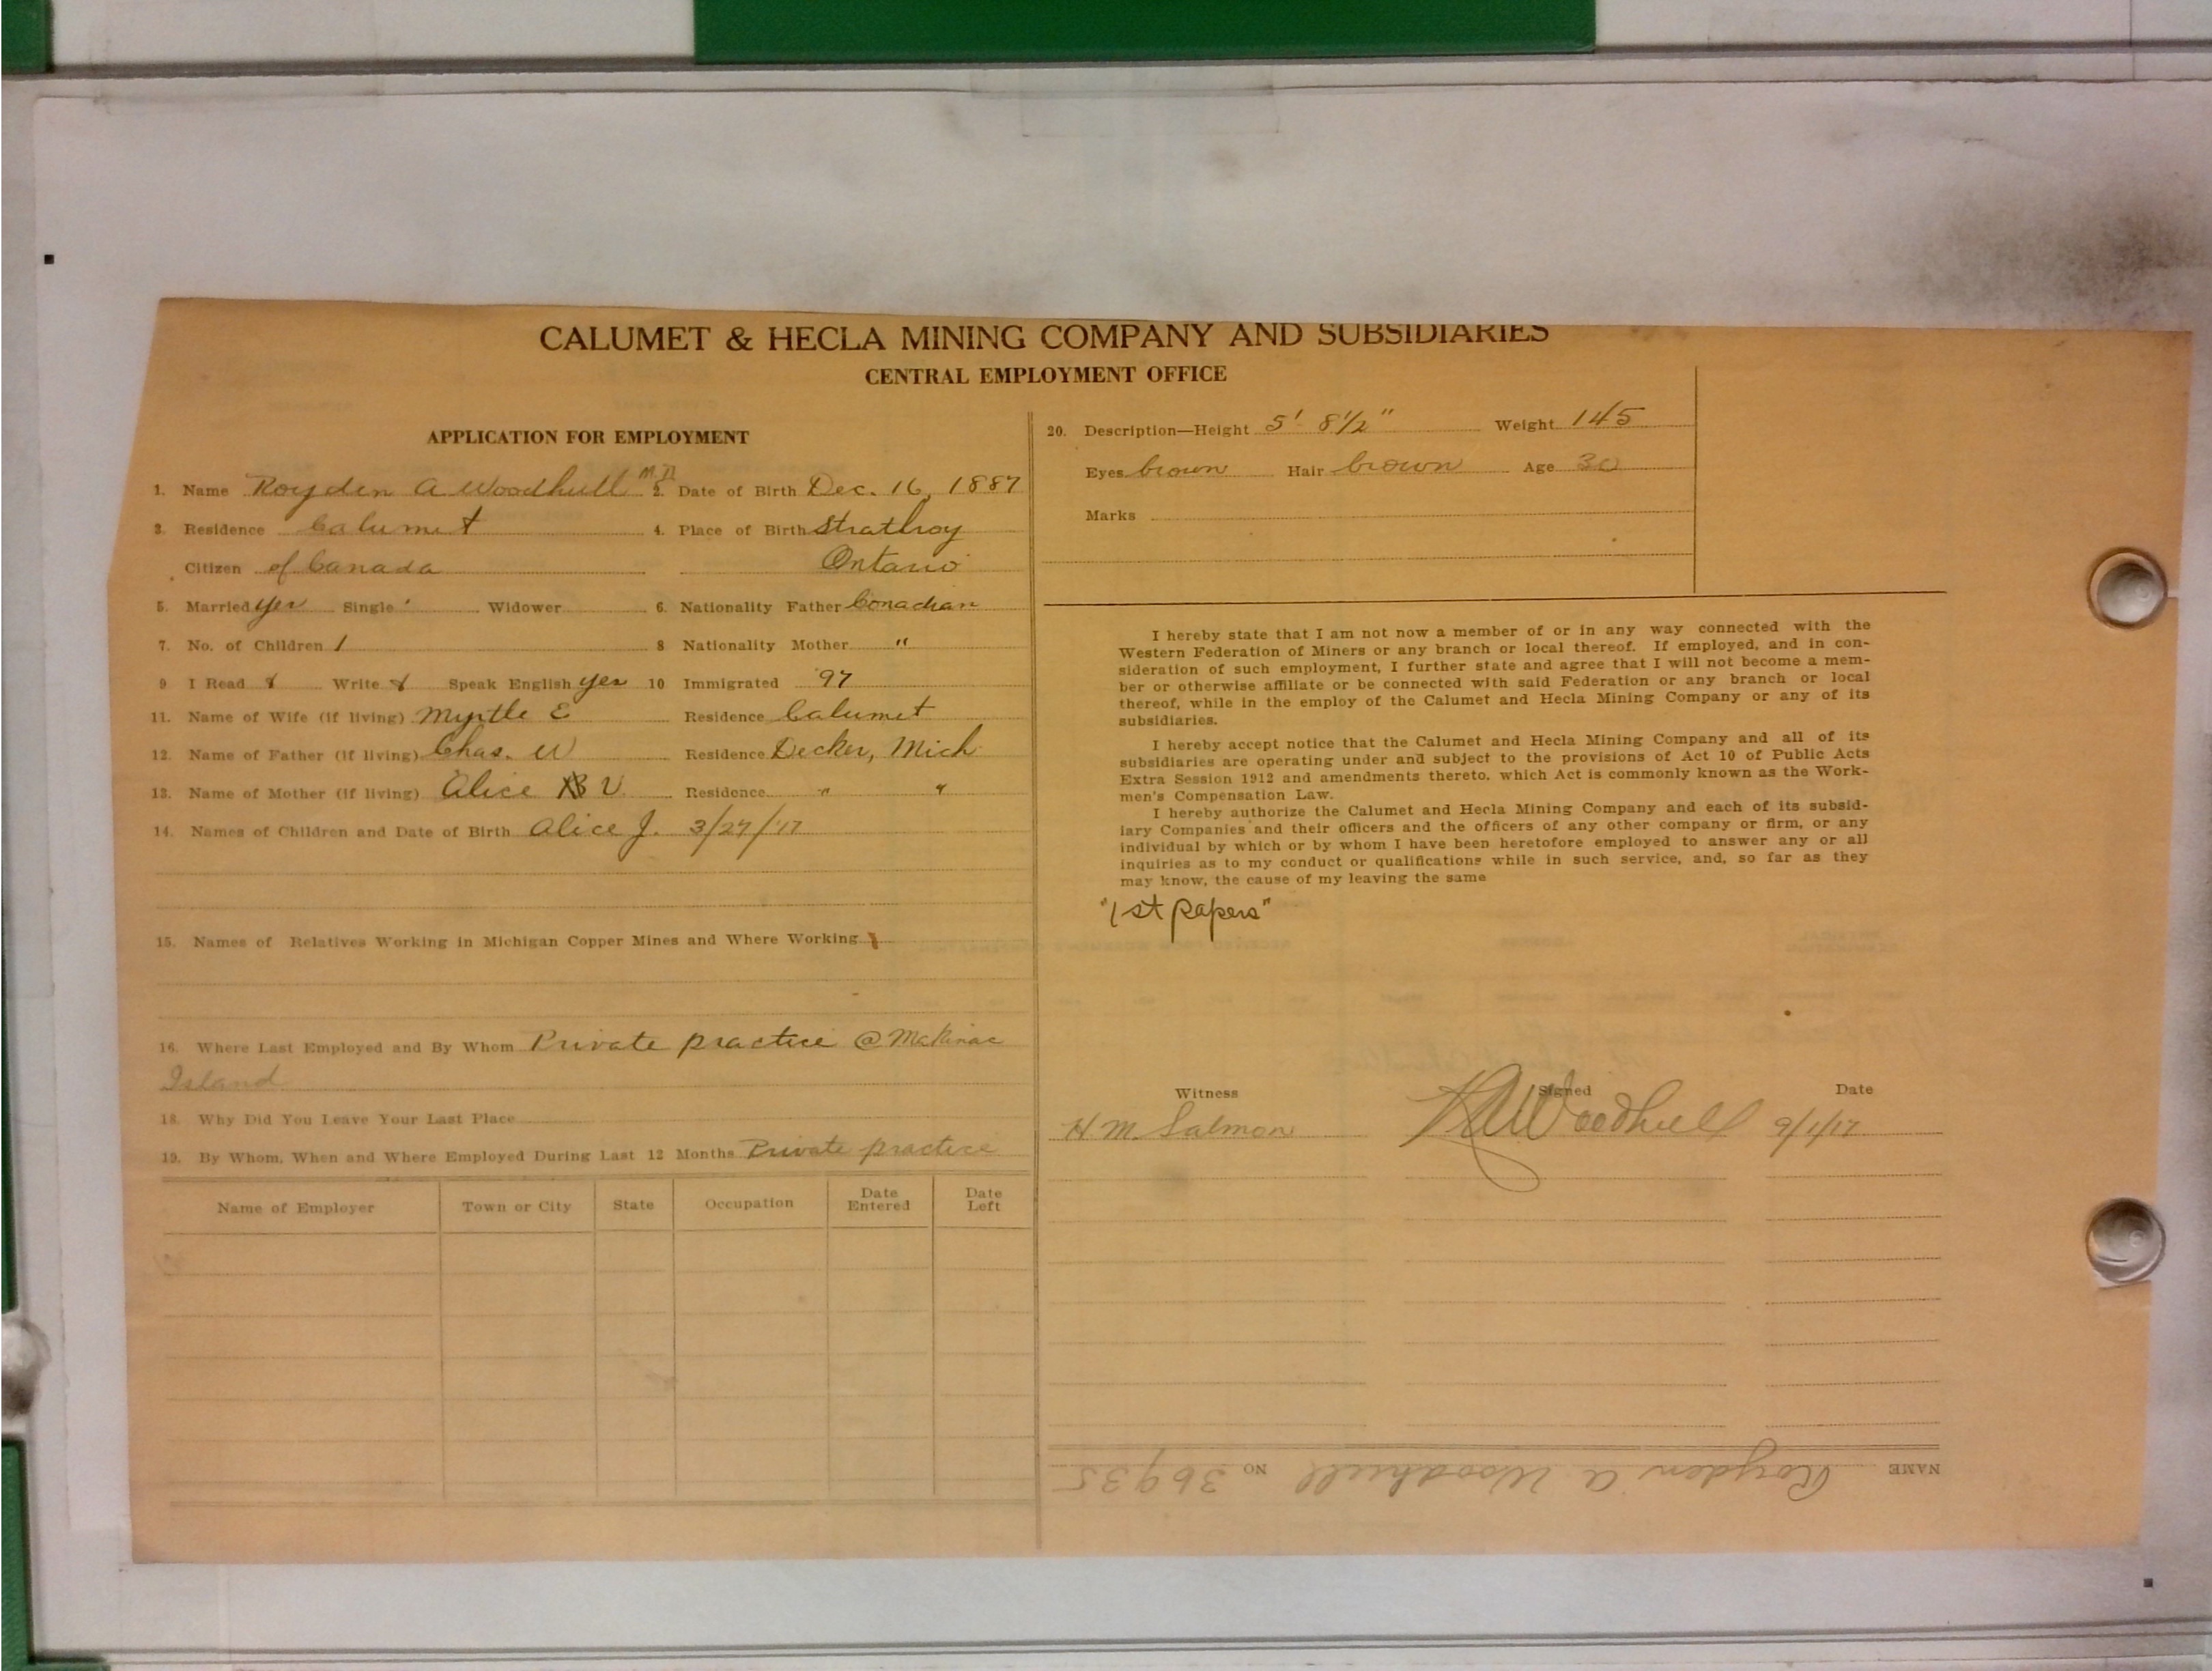 CALUMET & HECLA MINING COMPANY AND SUBSIDIARIES
CENTRAL EMPLOYMENT OFFICE
APPLICATION FOR EMPLOYMENT
1. Name Royden A Woodhull M.D. 2. Date of Birth Dec. 16, 1887
3. Residence Calumet 4. Place of Birth Strathroy
Citizen of Canada Ontario
5. Married yes Single Widower 6. Nationality Father Canadian
7. No. of Children 1 8 Nationality Mother "
9 I Read & Write & Speak English yes 10 Immigrated '97
11. Name of Wife (if living) Myrtle E Residence Calumet
12. Name of Father (if living) Chas. W Residence Decker, Mich
13. Name of Mother (if living) Alice V Residence " "
14. Names of Children and Date of Birth Alice J. 3/27/'17
15. Names of Relatives Working in Michigan Copper Mines and Where Working
16. Where Last Employed and By Whom Private practice @ Makinac
Island
18. Why Did You Leave Your Last Place
19. By Whom, When and Where Employed During Last 12 Months Private practice
Name of Employer Town or City State Occupation Date Entered Date Left
20. Description—Height 5' 8 1/2" Weight 145
Eyes brown Hair brown Age 30
Marks
I hereby state that I am not now a member of or in any way connected with the
Western Federation of Miners or any branch or local thereof. If employed, and in con-
sideration of such employment, I further state and agree that I will not become a mem-
ber or otherwise affiliate or be connected with said Federation or any branch or local
thereof, while in the employ of the Calumet and Hecla Mining Company or any of its
subsidiaries.
I hereby accept notice that the Calumet and Hecla Mining Company and all of its
subsidiaries are operating under and subject to the provisions of Act 10 of Public Acts
Extra Session 1912 and amendments thereto, which Act is commonly known as the Work-
men's Compensation Law.
I hereby authorize the Calumet and Hecla Mining Company and each of its subsid-
iary Companies and their officers and the officers of any other company or firm, or any
individual by which or by whom I have been heretofore employed to answer any or all
inquiries as to my conduct or qualifications while in such service, and, so far as they
may know, the cause of my leaving the same
"1st papers"
Witness Signed Date
H M. Salmon RAWoodhull 9/1/17
NAME Royden A Woodhull NO 36935